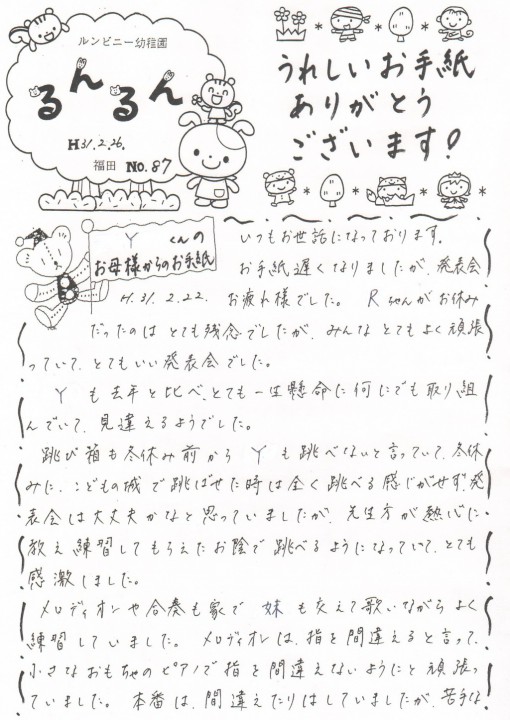 ルンビニー幼稚園
るんるん
H31.2.26.
福田 No.87
うれしいお手紙
ありがとう
ございます!
Y くんの
お母様からのお手紙
H.31.2.22.
いつもお世話になっております。
お手紙遅くなりましたが、発表会
お疲れ様でした。 Rちゃんがお休み
だったのはとても残念でしたが、みんなとてもよく頑張
っていて、とてもいい発表会でした。
Y も去年と比べ、とても一生懸命に何にでも取り組
んでいて、見違えるようでした。
跳び箱も冬休み前から Y も跳べないと言っていて、冬休
みに、こどもの城で跳ばせた時は全く跳べる感じがせず、発
表会は大丈夫かなと思っていましたが、先生方が熱心に
教え練習してもらえたお陰で跳べるようになっていて、とても
感激しました。
メロディオンや合奏も家で 妹も交えて歌いながらよく
練習していました。 メロディオンは、指を間違えると言って、
小さなおもちゃのピアノで指を間違えないようにと頑張っ
ていました。 本番は、間違えたりはしていましたが、苦手な